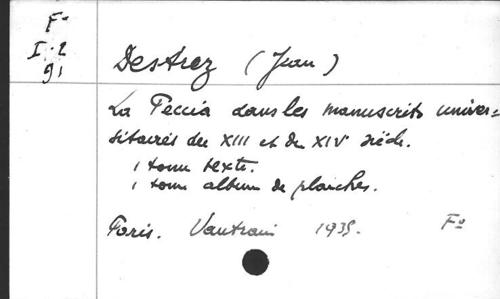 F°
I.2
91
Destrez (Jean)
La Peccia dans les manuscrits univer=
sitaires du XIII et du XIV siècle.
1 tome texte.
1 tome album de planches.
Paris. Vautrain 1935. F°